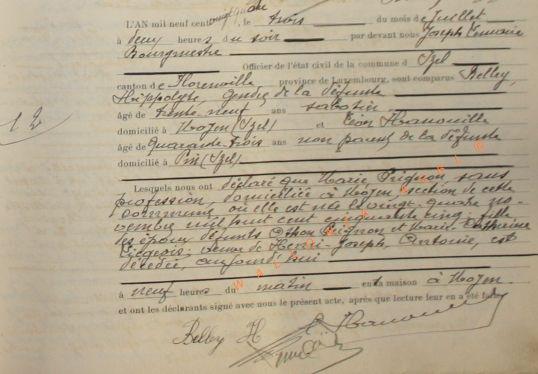 L'AN mil neuf cent vingt quatre, le trois du mois de Juillet
à deux heures du soir par devant nous Joseph
Bourgmestre
Officier de l'état civil de la commune d Izel
canton de Florenville province de Luxembourg, sont comparus Belley,
Hippolyte, gendre de la défunte
âgé de trente neuf ans sabotier
domicilié à Moyen (Izel) et Léon Hanouille
âgé de quarante trois ans non parent de la défunte
domicilié à Pin (Izel)
Lesquels nous ont déclaré que Marie Pignon sans
profession, domiciliée à Moyen section de cette
commune où elle est née le vingt quatre no-
vembre mil huit cent cinquante cinq, fille
des époux défunts Othon Pignon et Marie Catherine
Liégeois, veuve de Henri-Joseph Antoine, est
décédée, aujourd'hui
à neuf heures du matin en sa maison à Moyen.
et ont les déclarants signé avec nous le présent acte, après que lecture leur en a été faite
Belley H
12